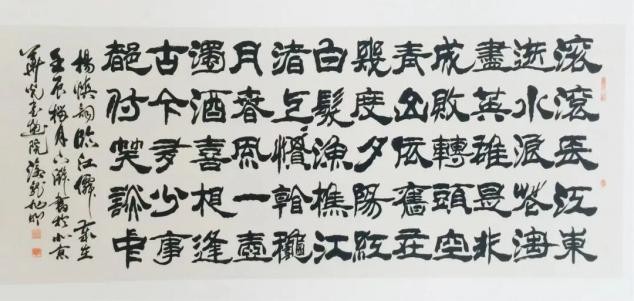 滚滚長江東
逝水浪花淘
盡英雄是非
成敗轉頭空
青山依舊在
幾度夕陽紅
白髮漁樵江
渚上慣看龝
月春風一壺
濁酒喜相逢
古今多少事
都付笑談中
楊慎詞臨江僊 歲在
壬辰 月 書於北京
畫院